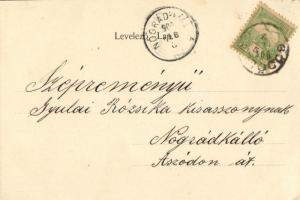 Levelező Lap
NÓGRÁD
Szépreményü
Gyulai Rózsika kisasszonynak
Nográdkálló
Aszódon át.